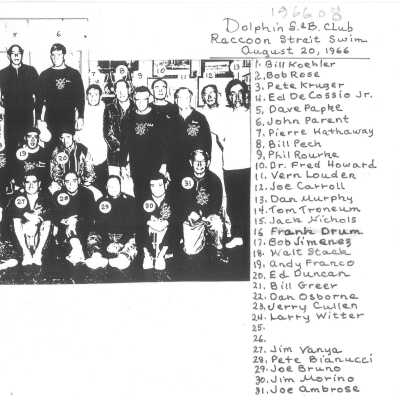 196608
Dolphin S.&B. Club
Raccoon Strait Swim
August 20, 1966
1. Bill Koehler
2. Bob Rose
3. Pete Kruger
4. Ed DeCossio Jr.
5. Dave Papke
6. John Parent
7. Pierre Hathaway
8. Bill Pech
9. Phil Rourke
10. Dr. Fred Howard
11. Vern Louden
12. Joe Carroll
13. Dan Murphy
14. Tom Troneum
15. Jack Nichols
16 Frank Drum
17. Bob Jimenez
18. Walt Stack
19. Andy Franco
20. Ed Duncan
21. Bill Greer
22. Dan Osborne
23. Jerry Cullen
24. Larry Witter
25.
26.
27. Jim Vanya
28. Pete Bianucci
29. Joe Bruno
30. Jim Morino
31. Joe Ambrose
5 6
7 8 9 10 11 12 13
19 20
31
29 30